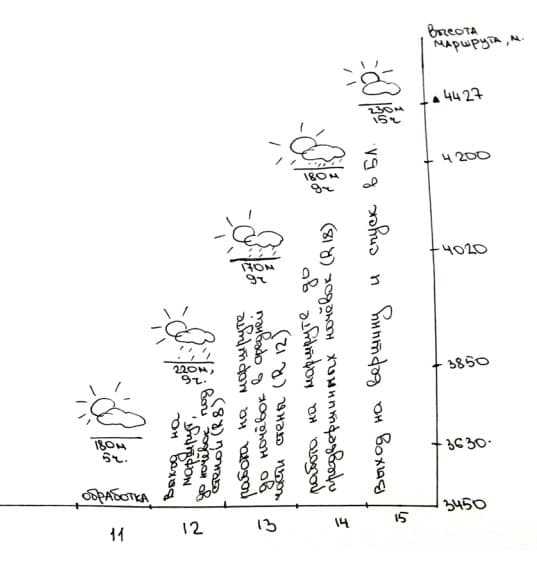 Высота
маршрута, м.
▲4427
4200
4020
3850
3630.
3450
230м
15ч
180м
9ч
170м
9ч
220м,
9ч.
180м
5ч.
обработка
Выход на
маршрут,
до ночёвок под
стеной (R8)
работа на маршруте
до ночёвок в средней
части стены (R12)
работа на маршруте до
предвершинных ночёвок (R18)
Выход на вершину и спуск в БЛ.
11
12
13
14
15